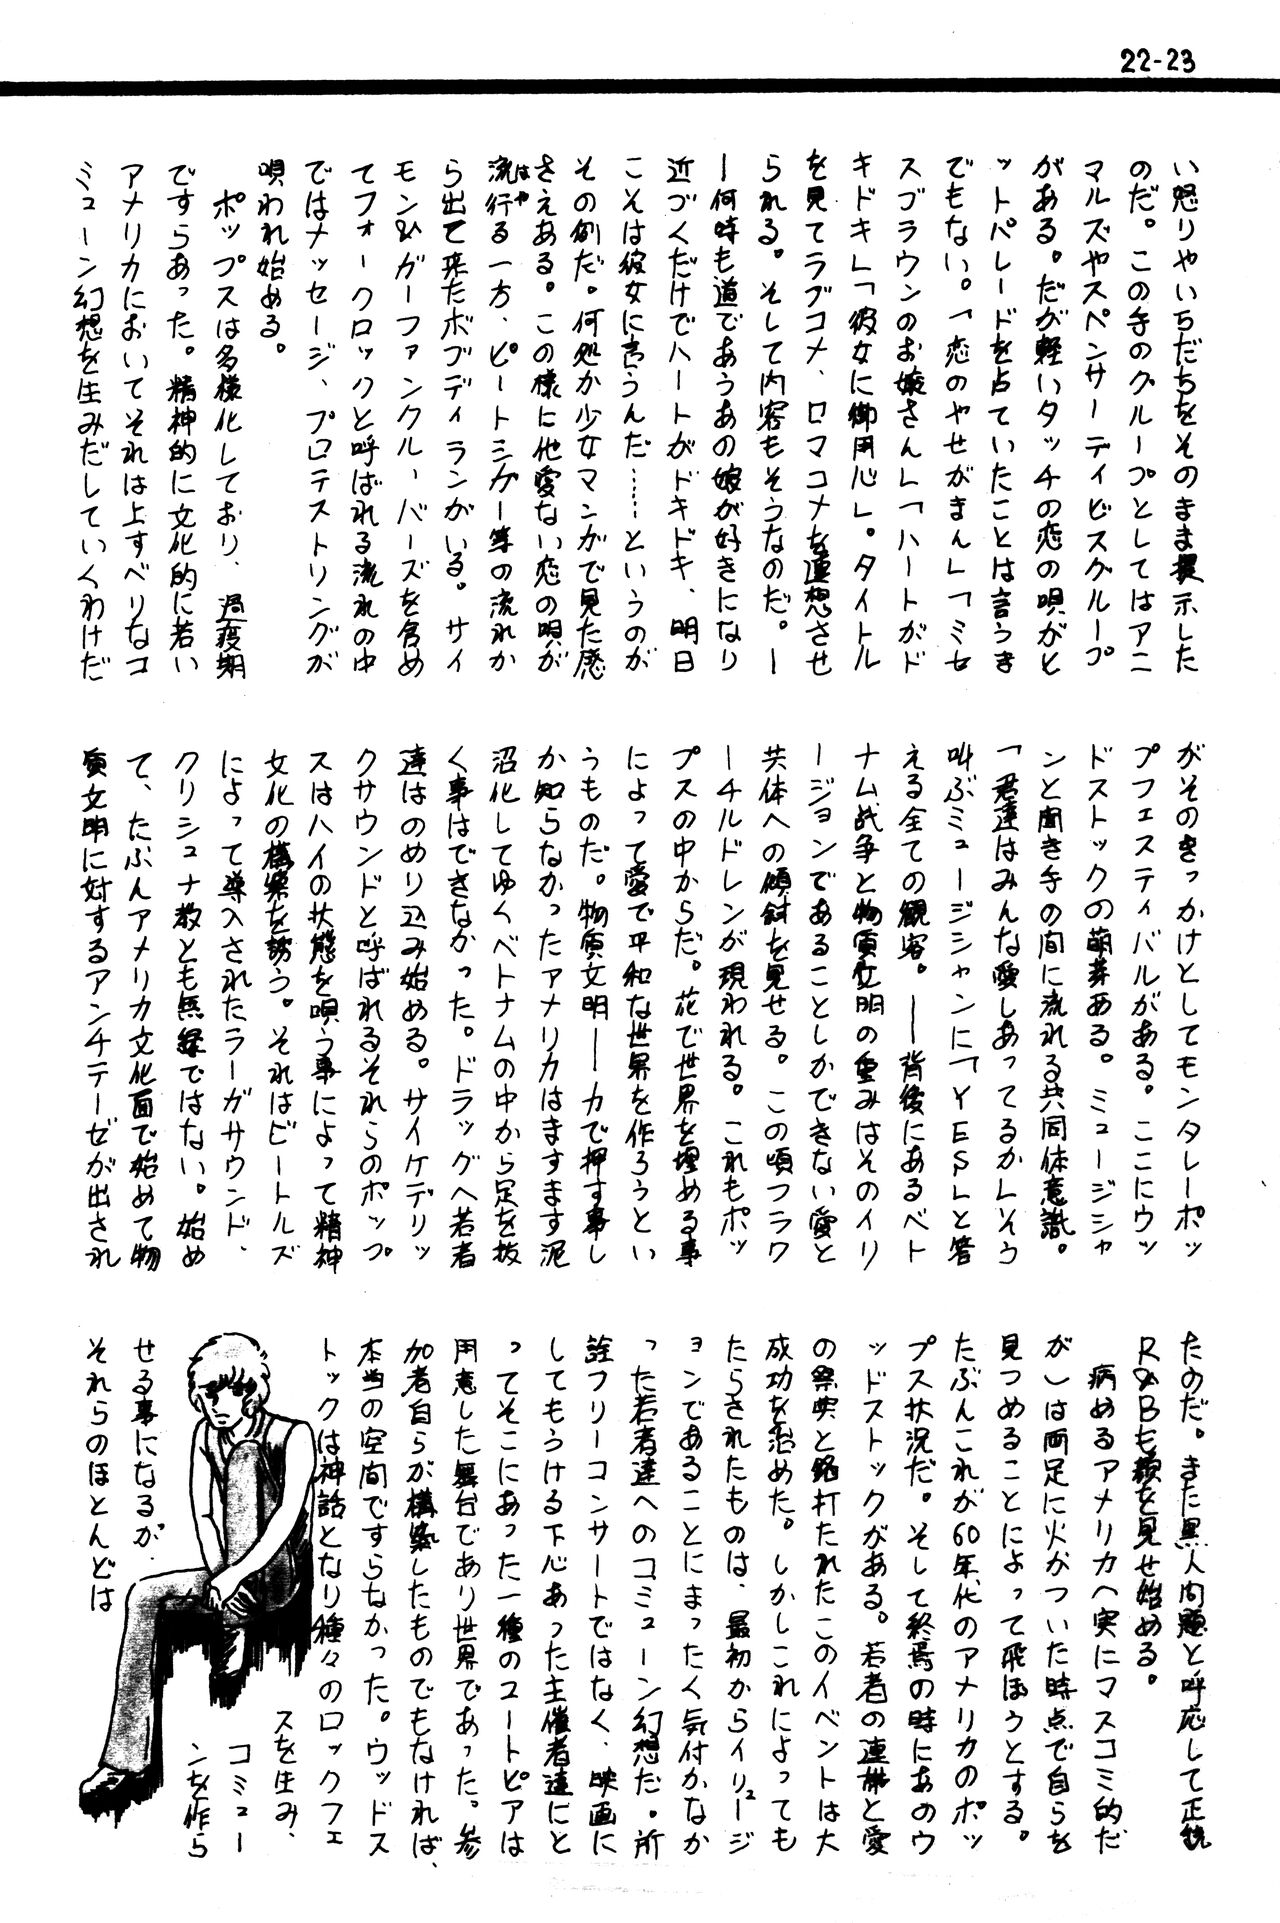 22-23
い怒りやいらだちをそのまま提示した
のだ。この手のグループとしてはアニ
マルズやスペンサーディビスグループ
がある。だが軽いタッチの恋の唄がヒ
ットパレードを占ていたことは言うま
でもない。「恋のやせがまん」「ミセ
スブラウンのお嬢さん」「ハートがド
キドキ」「彼女に御用心」。タイトル
を見てラブコメ、ロマコメを連想させ
られる。そして内容もそうなのだ。ー
ー何時も道であうあの娘が好きになり
近づくだけでハートがドキドキ、明日
こそは彼女に言うんだ……というのが
その例だ。何処か少女マンガで見た感
さえある。この様に他愛ない恋の唄が
流行る一方、ピートシガー等の流れか
はや
ら出て来たボブディランがいる。サイ
モン&ガーファンクル、バーズを含め
てフォークロックと呼ばれる流れの中
ではメッセージ、プロテストリングが
唄われ始める。
ポップスは多様化しており、過渡期
ですらあった。精神的に文化的に若い
アメリカにおいてそれは上すべりなコ
ミューン幻想を生みだしていくわけだ
がそのきっかけとしてモンタレーポッ
プフェスティバルがある。ここにウッ
ドストックの萌芽ある。ミュージシャ
ンと聞き手の間に流れる共同体意識。
「君達はみんな愛しあってるか」そう
叫ぶミュージシャンに「YES」と答
える全ての観客。――背後にあるベト
ナム戦争と物質文明の重みはそのイリ
ージョンであることしかできない愛と
共体への傾斜を見せる。この頃フラワ
ーチルドレンが現われる。これもポッ
プスの中からだ。花で世界を埋める事
によって愛で平和な世界を作ろうとい
うものだ。物質文明――力で押す事し
か知らなかったアメリカはますます泥
沼化してゆくベトナムの中から足を抜
く事はできなかった。ドラッグへ若者
達はのめり込み始める。サイケデリッ
クサウンドと呼ばれるそれらのポップ
スはハイの状態を唄う事によって精神
文化の構築を誘う。それはビートルズ
によって導入されたラーガサウンド、
クリシュナ教とも無縁ではない。始め
て、たぶんアメリカ文化面で始めて物
質文明に対するアンチテーゼが出され
たのだ。また黒人問題と呼応して正統
R&Bも顔を見せ始める。
病めるアメリカへ実にマスコミ的だ
が）は両足に火がついた時点で自らを
見つめることによって飛ぼうとする。
たぶんこれが60年代のアメリカのポッ
プス状況だ。そして終焉の時にあのウ
ッドストックがある。若者の連帯と愛
の祭典と銘打たれたこのイベントは大
成功を治めた。しかしこれによっても
たらされたものは、最初からイリュージ
ョンであることにまったく気付かなか
った若者達へのコミューン幻想だ。所
詮フリーコンサートではなく、映画に
してもうける下心あった主催者達にと
ってそこにあった一種のユートピアは
用意した舞台であり世界であった。参
加者自らが構築したものでもなければ、
本当の空間ですらなかった。ウッドス
トックは神話となり種々のロックフェ
スを生み、
コミュー
ンを作ら
せる事になるが、
それらのほとんどは